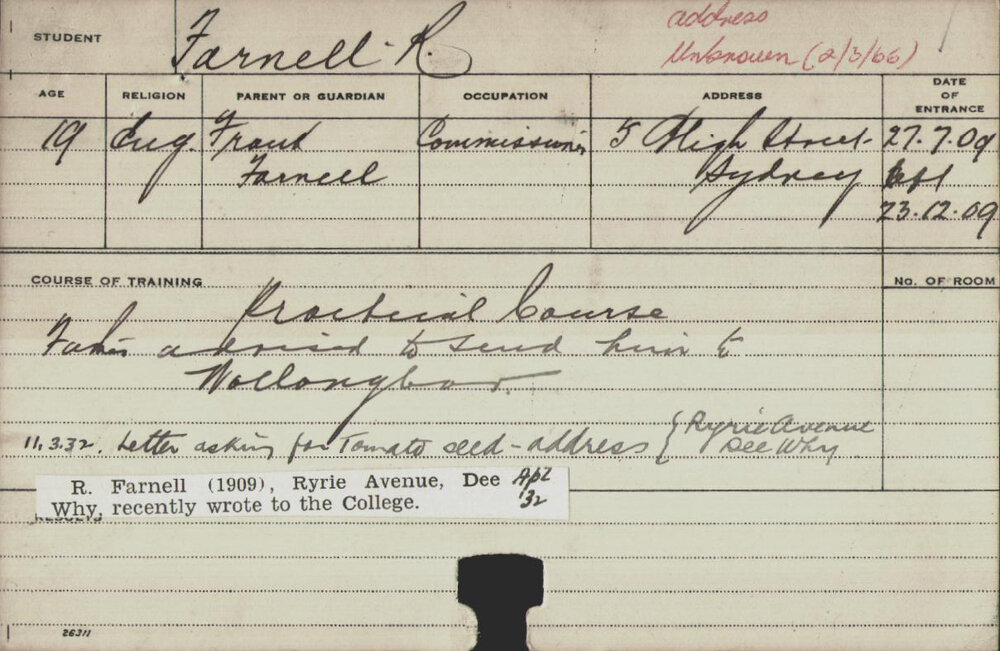 STUDENT
Farnell R.
address
Unknown (2/3/66)
AGE
RELIGION
PARENT OR GUARDIAN
OCCUPATION
ADDRESS
DATE OF ENTRANCE
19 Eng. Frank Commissioner 5 High Street 27.7.09
Farnell Sydney left
23.12.09
COURSE OF TRAINING
No. OF ROOM
Practical Course
Father advised to send him to
Wollongbar.
11.3.32. Letter asking for Tomato seed - address { Ryrie Avenue
Dee Why.
R. Farnell (1909), Ryrie Avenue, Dee
Why, recently wrote to the College.
Apl
'32
RESULTS
26311